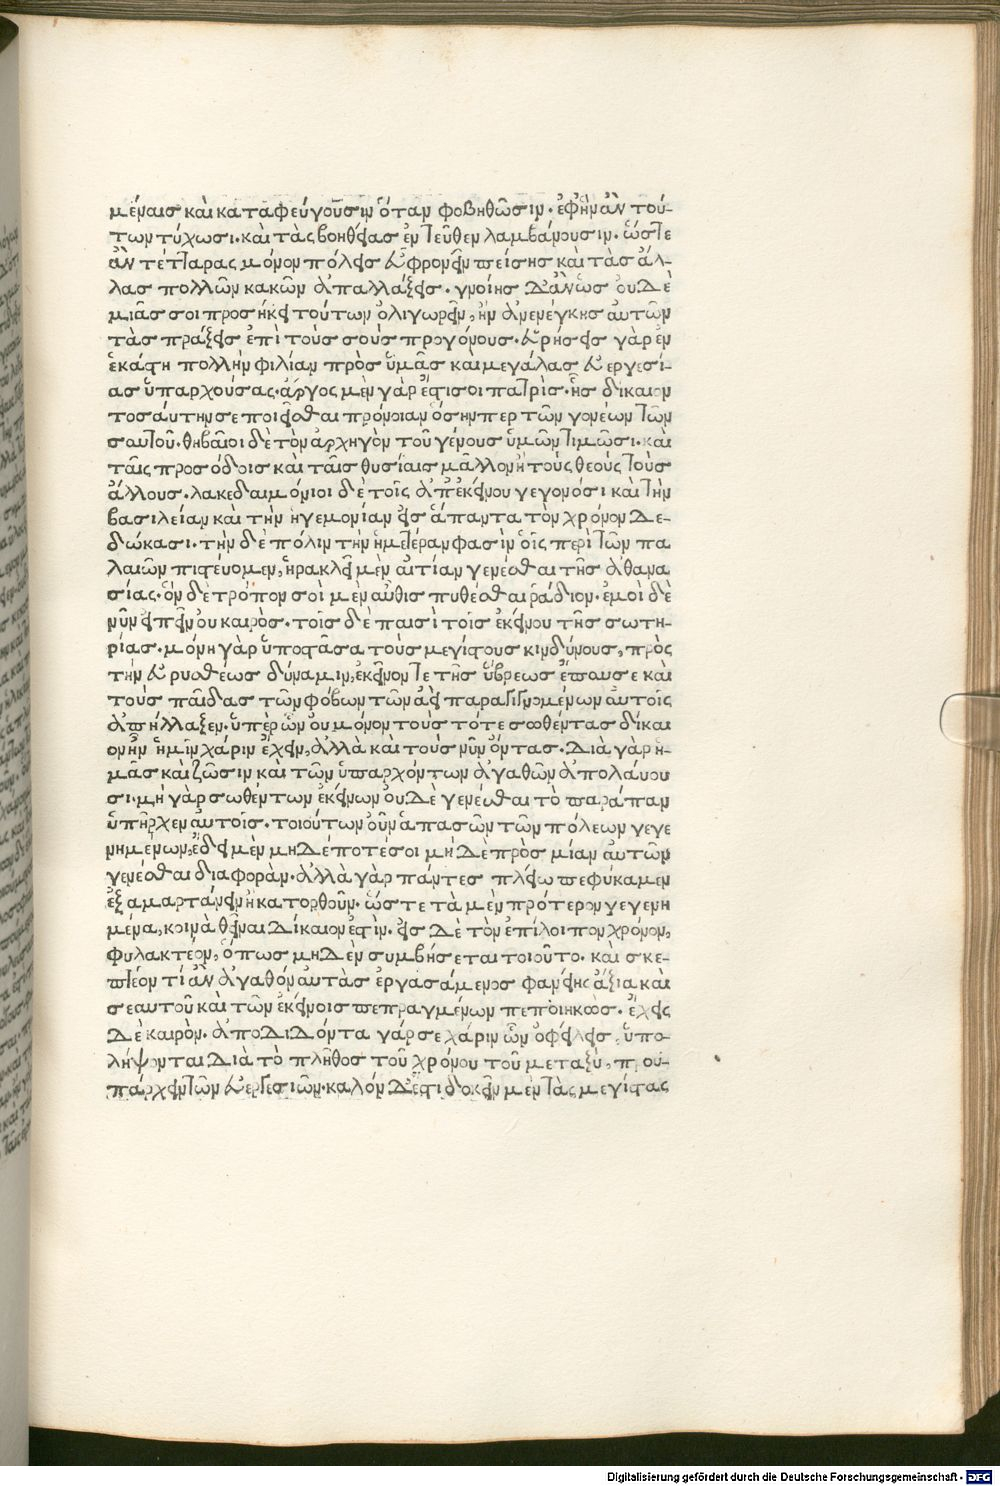 μέναις καὶ καταφεύγουσιν ὅταν φοβηθῶσιν· ἐφ' ἣν ἂν τού-
των τύχωσι. καὶ τὰς βοηθείας ἐντεῦθεν λαμβάνουσιν. ὥστε
ἂν τέτταρας μόνον πόλεις εὖ φρονεῖν πείσης καὶ τὰς ἄλ-
λας πολλῶν κακῶν ἀπαλλάξεις. γνοίης δ' ἂν ὡς οὐδε
μιᾶς σοι προσήκει τούτων ὀλιγωρεῖν, ἢν ἀνενέγκης αὐτῶν
τὰς πράξεις ἐπὶ τοὺς σοὺς προγόνους. εὑρήσεις γὰρ ἐν
ἑκάστη πολλὴν φιλίαν πρὸς ὑμᾶς καὶ μεγάλας εὐεργεσί-
ας ὑπαρχούσας. ἄργος μὲν γὰρ ἐστί σοι πατρίς. ἧς δίκαιον
τοσαύτην σε ποιεῖσθαι πρόνοιαν ὅσην περ τῶν γονέων τῶν
σαυτοῦ. θηβαῖοι δὲ τὸν ἀρχηγὸν τοῦ γένους ὑμῶν τιμῶσι. καὶ
ταῖς προσόδοις καὶ ταῖς θυσίαις μᾶλλον ἢ τοὺς θεοὺς τοὺς
ἄλλους. λακεδαιμόνιοι δὲ τοῖς ἀπ' ἐκείνου γεγονόσι καὶ τὴν
βασιλείαν καὶ τὴν ἡγεμονίαν εἰς ἅπαντα τὸν χρόνον δε-
δώκασι. τὴν δὲ πόλιν τὴν ἡμετέραν φασὶν οἷς περὶ τῶν πα
λαιῶν πιστεύομεν, ἡρακλεῖ μὲν αἰτίαν γενέσθαι τῆς ἀθανα
σίας. ὃν δὲ τρόπον σοὶ μὲν αὖθις πυθέσθαι ῥάδιον. ἐμοὶ δὲ
νῦν εἰπεῖν οὐ καιρός. τοῖς δὲ παισὶ τοῖς ἐκείνου τῆς σωτη-
ρίας. μόνη γὰρ ὑποστᾶσα τοὺς μεγίστους κινδύνους, πρὸς
τὴν εὐρυσθέως δύναμιν, ἐκεῖνόν τε τῆς ὕβρεως ἔπαυσε καὶ
τοὺς παῖδας τῶν φόβων τῶν ἀεὶ παραγιγνομένων αὐτοῖς
ἀπήλλαξεν. ὑπὲρ ὧν οὐ μόνον τοὺς τότε σωθέντας δίκαι
ον ἦν ἡμῖν χάριν ἔχειν, ἀλλὰ καὶ τοὺς νῦν ὄντας. διὰ γὰρ ἡ-
μᾶς καὶ ζῶσιν καὶ τῶν ὑπαρχόντων ἀγαθῶν ἀπολαύου
σι. μὴ γὰρ σωθέντων ἐκείνων οὐδὲ γενέσθαι τὸ παράπαν
ὑπῆρχεν αὐτοῖς. τοιούτων οὖν ἁπασῶν τῶν πόλεων γεγε
νημένων, ἔδει μὲν μηδέποτέ σοι μηδὲ πρὸς μίαν αὐτῶν
γενέσθαι διαφοράν. ἀλλὰ γὰρ πάντες πλείω πεφύκαμεν
ἐξαμαρτάνειν ἢ κατορθοῦν. ὥστε τὰ μὲν πρότερον γεγενη
μένα, κοινὰ θεῖναι δίκαιον ἐστίν. εἰς δὲ τὸν ἐπίλοιπον χρόνον,
φυλακτέον, ὅπως μηδὲν συμβήσεται τοιοῦτο. καὶ σκε-
πτέον τί ἂν ἀγαθὸν αὐτὰς ἐργασάμενος φανείης ἄξια καὶ
σεαυτοῦ καὶ τῶν ἐκείνοις πεπραγμένων πεποιηκώς. ἔχεις
δὲ καιρόν. ἀποδιδόντα γάρ σε χάριν ὧν ὀφείλεις, ὑπο-
λήψονται διὰ τὸ πλῆθος τοῦ χρόνου τοῦ μεταξύ, προϋ-
πάρχειν τῶν εὐεργεσιῶν. καλὸν δ' ἐστὶ δοκεῖν μὲν τὰς μεγίστας
Digitalisierung gefördert durch die Deutsche Forschungsgemeinschaft - DFG